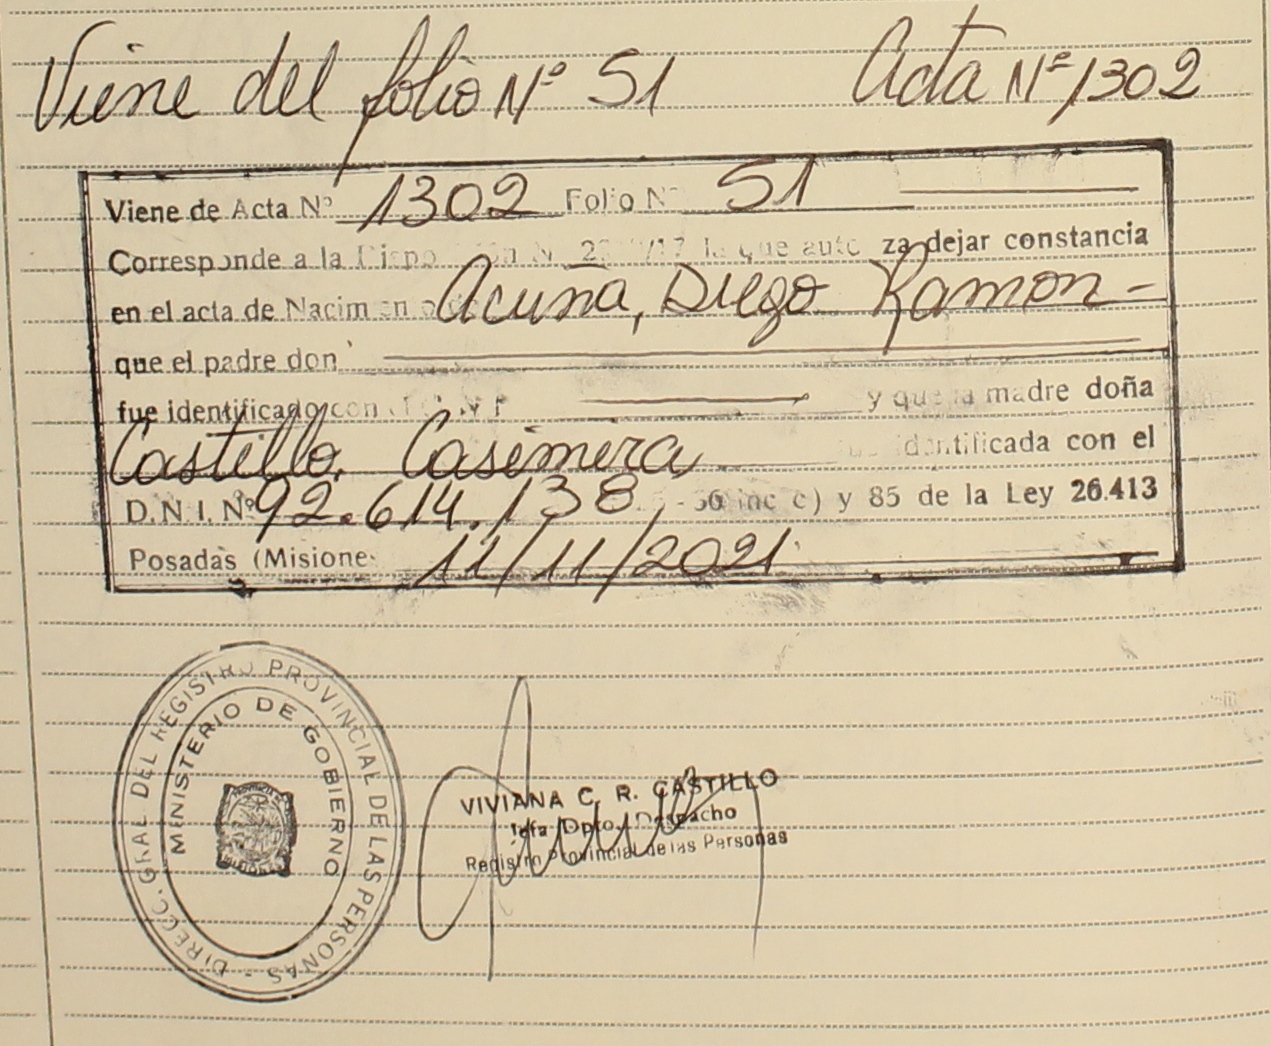 Viene del folio Nº 51 Acta Nº 1302
Viene de Acta Nº 1302 Folio Nº 51
Corresponde a la la que autoriza dejar constancia
en el acta de Nacimiento Acuña, Diego Ramon -
que el padre don
fue identificado con y que la madre doña
Castillo, Casimira identificada con el
D.N.I. Nº 92.614.138 inc c) y 85 de la Ley 26.413
Posadas (Misiones 11/11/2021
DIRECC. GRAL DEL REGISTRO PROVINCIAL DE LAS PERSONAS -
MINISTERIO DE GOBIERNO
VIVIANA C. R. CASTILLO
Jefa Dpto. Despacho
Registro Provincial de las Personas